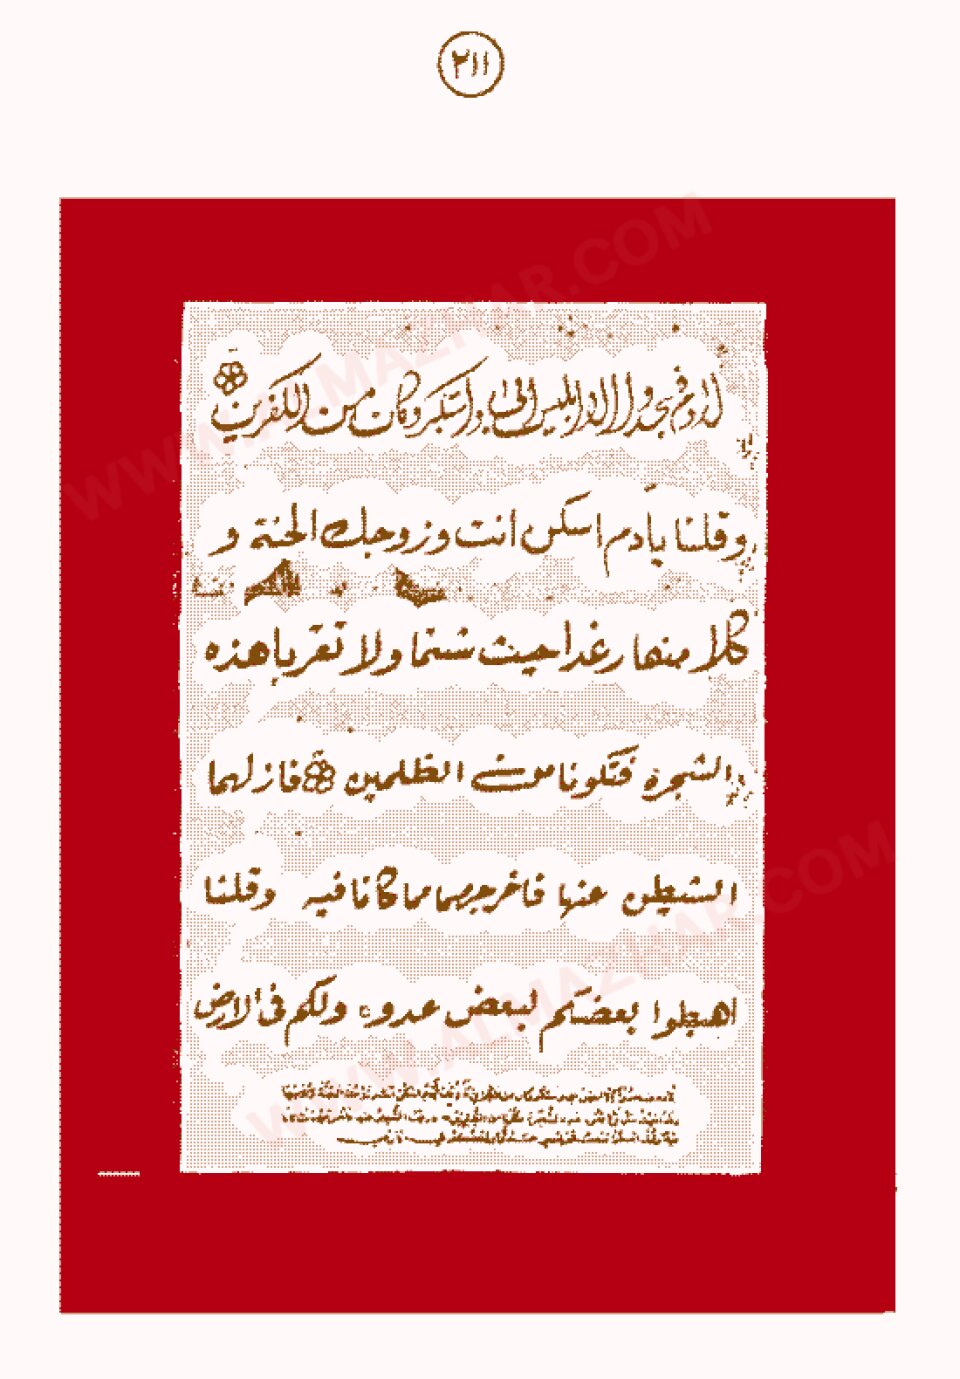 ٢١١
لادم فسجدوا الا ابليس ابى واستكبر وكان من الكفرين
وقلنا يادم اسكن انت وزوجك الجنة و
كلا منها رغدا حيث شئتما ولا تقربا هذه
الشجرة فتكونا من الظلمين فازلهما
الشيطن عنها فاخرجهما مما كانا فيه وقلنا
اهبطوا بعضكم لبعض عدو ولكم فى الارض
WWW.ALMAZHAR.COM
WWW.ALMAZHAR.COM